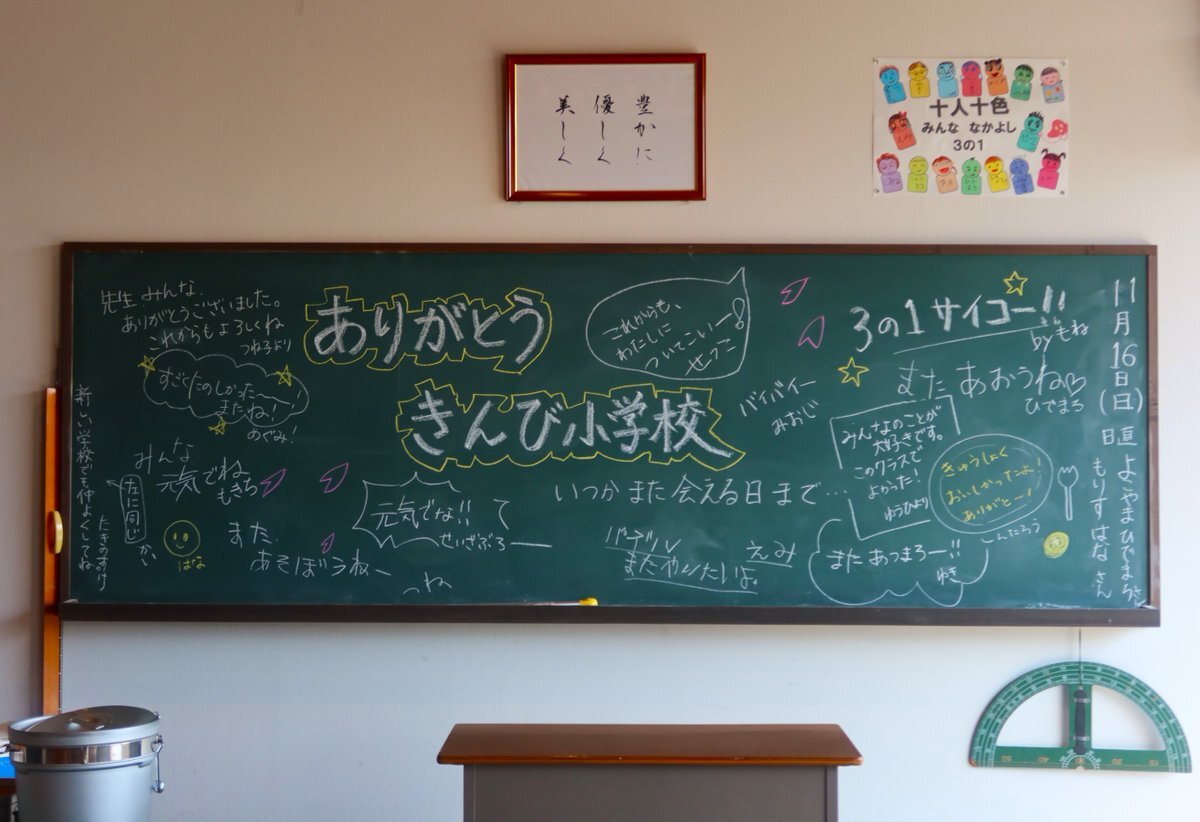 豊かに
優しく
美しく
十人十色
みんな なかよし
3の1
先生 みんな、
ありがとうございました。
これからもよろしくね
つね子より
すごくたのしかったー
またね!
めぐみ!
新しい学校でも仲よくしてね
たきのすけ
左に同じ
かい
みんな
元気でね
もきち
はな
また、
あそぼうねー
つね
ありがとう
きんび小学校
元気でな!!
せいざぶろー
これからも、
わたしに
ついてこいー!
せつこ
バイバイー
みおじ
いつか また 会える日 まで…
またやりたいよ。
えみ
3の1 サイコー!!
by もね
また あおうね♡
ひでまろ
みんなのことが
大好きです。
このクラスで
よかった!
ゆうひより
きゅうしょく
おいしかったよ!
ありがとー!
けんたろう
また あつまろー!!
ゆき
11月16日(日)
日直 よこやまひでまろさん
もりす はな さん